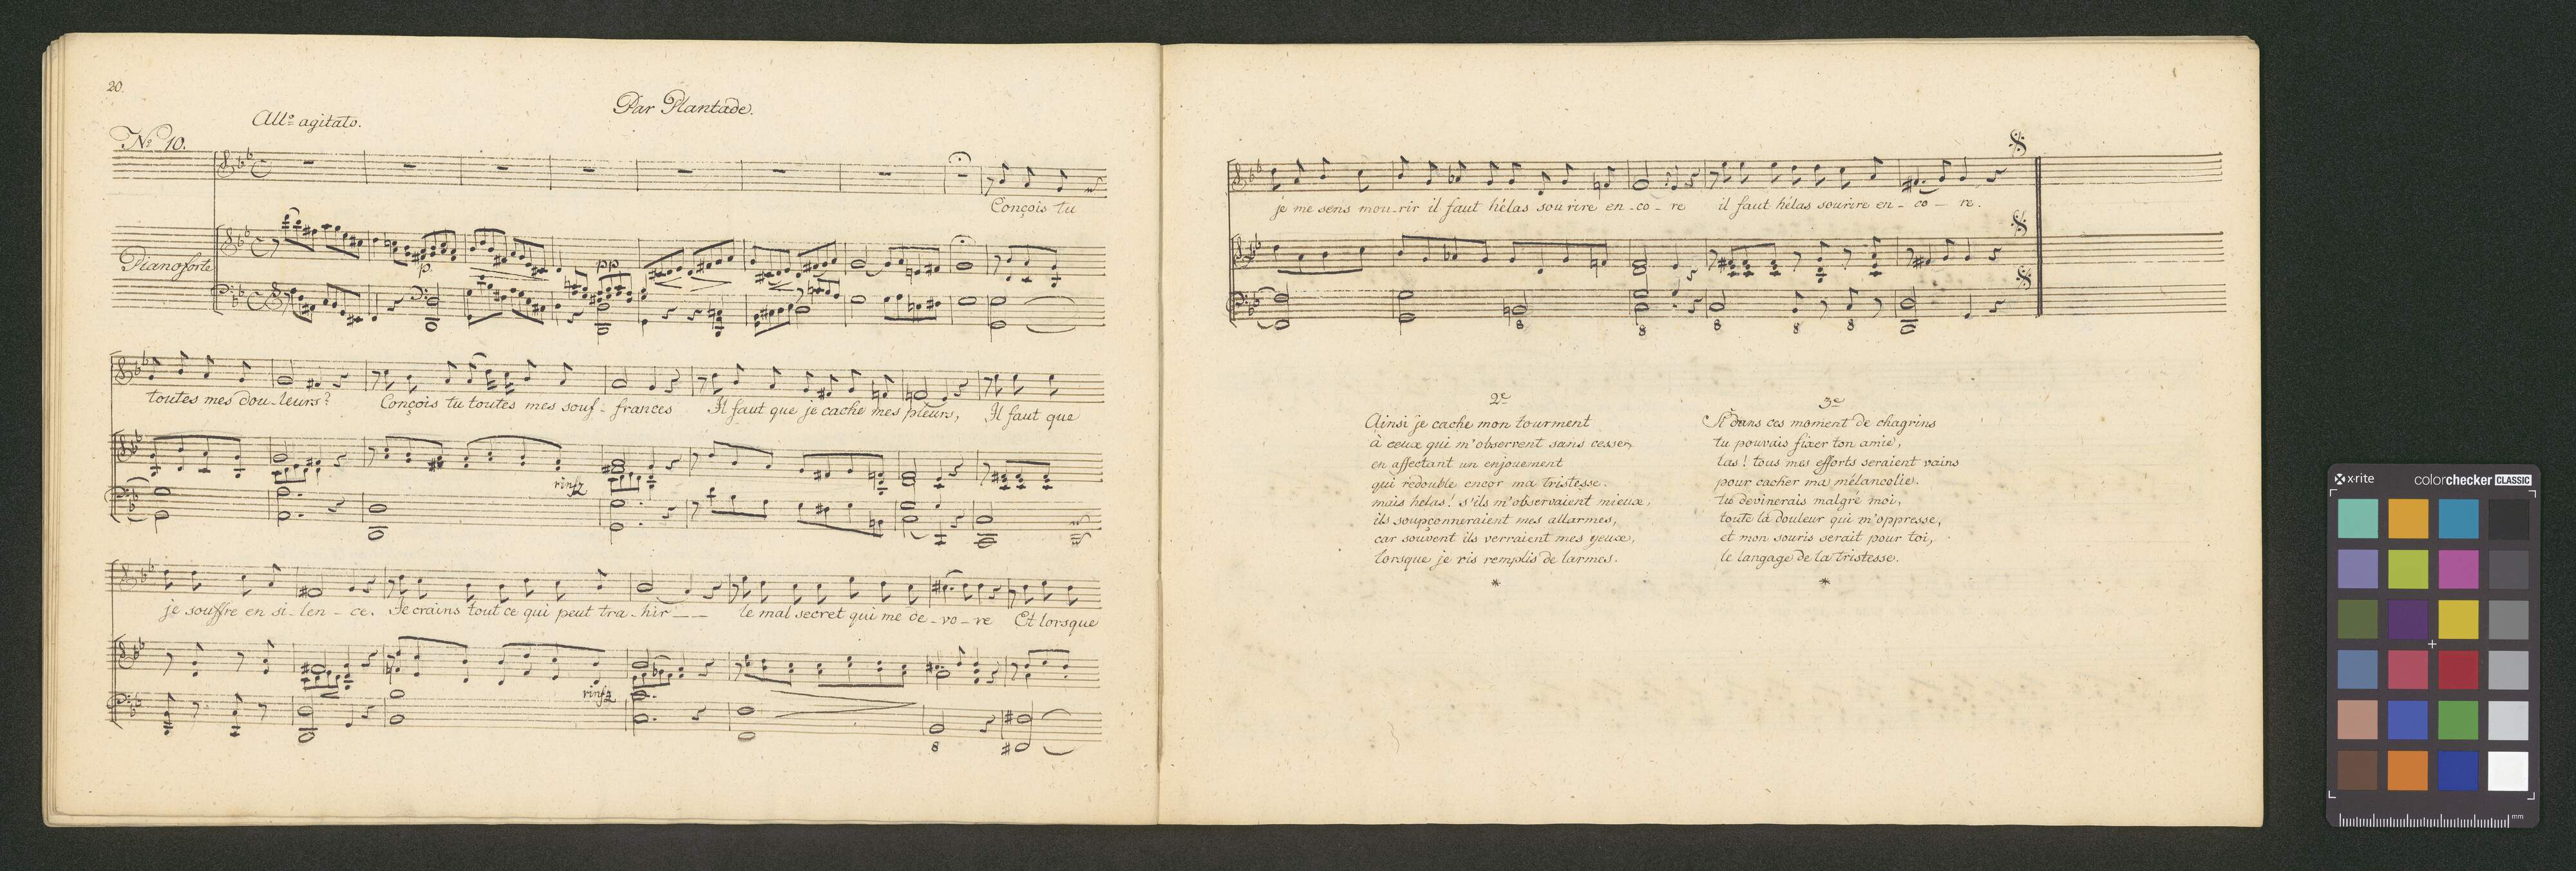 20.
Par Plantade.
All.º agitato.
Nº 10.
Conçois tu
Pianoforte
p.
pp
toutes mes dou-leurs? Conçois tu toutes mes souf-frances Il faut que je cache mes pleurs, Il faut que
rinfz
je souffre en si-len-ce. Je crains tout ce qui peut tra-hir -- le mal secret qui me de-vo-re Et lorsque
rinfz
8
je me sens mou-rir il faut hélas sourire en-co-re il faut hélas sourire en-co-re.
8 8 8 8 8
2e
Ainsi je cache mon tourment
à ceux qui m'observent sans cesse,
en affectant un enjouement
qui redouble encor ma tristesse.
mais helas! s'ils m'observaient mieux,
ils soupçonneraient mes allarmes,
car souvent ils verraient mes yeux,
lorsque je ris remplis de larmes.
*
3e
Si dans ces moment de chagrins
tu pouvais fixer ton amie,
las! tous mes efforts seraient vains
pour cacher ma mélancolie.
tu devinerais malgré moi,
toute la douleur qui m'oppresse,
et mon souris serait pour toi,
le langage de la tristesse.
*
x-rite colorchecker CLASSIC
mm